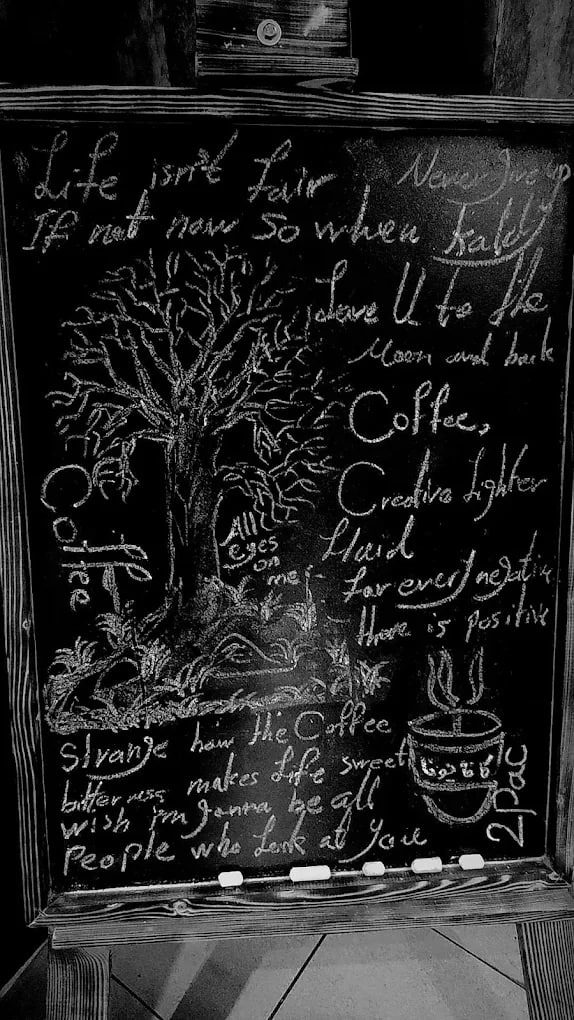 Life isn't fair
Never give up
If not now so when kaldy
Love U to the
Moon and back
Coffee,
Creative Lighter
fluid
for every negative
there is positive
Coffee
All
eyes
on
me
Strange how the Coffee
bitterness makes Life sweet
wish I'm gonna be all
People who Look at You
2Pac